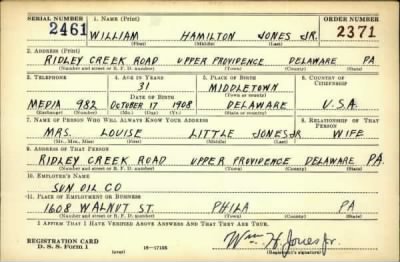 SERIAL NUMBER 1. NAME (Print) ORDER NUMBER
2461 WILLIAM HAMILTON JONES JR. 2371
(First) (Middle) (Last)
2. ADDRESS (Print)
RIDLEY CREEK ROAD UPPER PROVIDENCE DELAWARE PA
(Number and street or R. F. D. number) (Town) (County) (State)
3. TELEPHONE 4. AGE IN YEARS 5. PLACE OF BIRTH 6. COUNTRY OF CITIZENSHIP
31 MIDDLETOWN
DATE OF BIRTH (Town or county)
MEDIA 982 OCTOBER 17 1908 DELAWARE U.S.A.
(Exchange) (Number) (Mo.) (Day) (Yr.) (State or country)
7. NAME OF PERSON WHO WILL ALWAYS KNOW YOUR ADDRESS 8. RELATIONSHIP OF THAT PERSON
MRS. LOUISE LITTLE JONES JR WIFE
(Mr., Mrs., Miss) (First) (Middle) (Last)
9. ADDRESS OF THAT PERSON
RIDLEY CREEK ROAD UPPER PROVIDENCE DELAWARE PA.
(Number and street or R. F. D. number) (Town) (County) (State)
10. EMPLOYER'S NAME
SUN OIL CO
11. PLACE OF EMPLOYMENT OR BUSINESS
1608 WALNUT ST. PHILA PA
(Number and street or R. F. D. number) (Town) (County) (State)
I AFFIRM THAT I HAVE VERIFIED ABOVE ANSWERS AND THAT THEY ARE TRUE.
REGISTRATION CARD
D. S. S. Form 1 (over) 16—17105 Wm. H. Jones Jr.
(Registrant's signature)